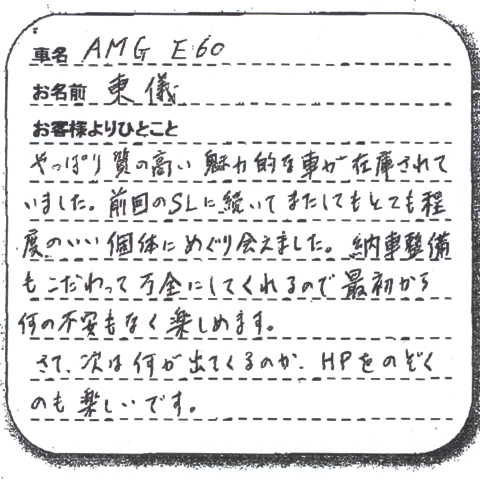 車名 AMG E60
お名前 東儀
お客様よりひとこと
やっぱり質の高い魅力的な車が在庫されて
いました。前回のSLに続いてまたしてもとても程
度のいい個体にめぐり会えました。納車整備
もこだわって万全にしてくれるので最初から
何の不安もなく楽しめます。
さて、次は何が出てくるのか、HPをのぞく
のも楽しいです。